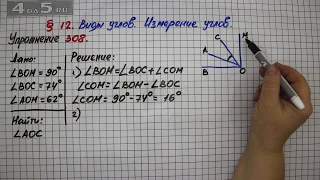 4DO5.RU
§ 12. Виды углов. Измерение углов.
Упражнение 308.
Дано:
∠BOM = 90°
∠BOC = 74°
∠AOM = 62°
Найти:
∠AOC
Решение:
1) ∠BOM = ∠BOC + ∠COM
∠COM = ∠BOM - ∠BOC
∠COM = 90° - 74° = 16°
2)
C
M
A
B
O